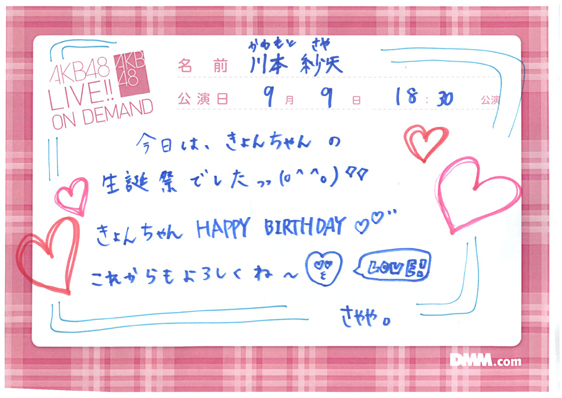 AKB48
LIVE!!
ON DEMAND
AKB
48
かわもと さや
名前 川本 紗矢
公演日 9月 9日 18:30 公演
今日は、きょんちゃんの
生誕祭でしたっっ(o^^o)
きょんちゃん HAPPY BIRTHDAY ♡♡
これからもよろしくね〜
LOVE!
さやや。
DMM.com